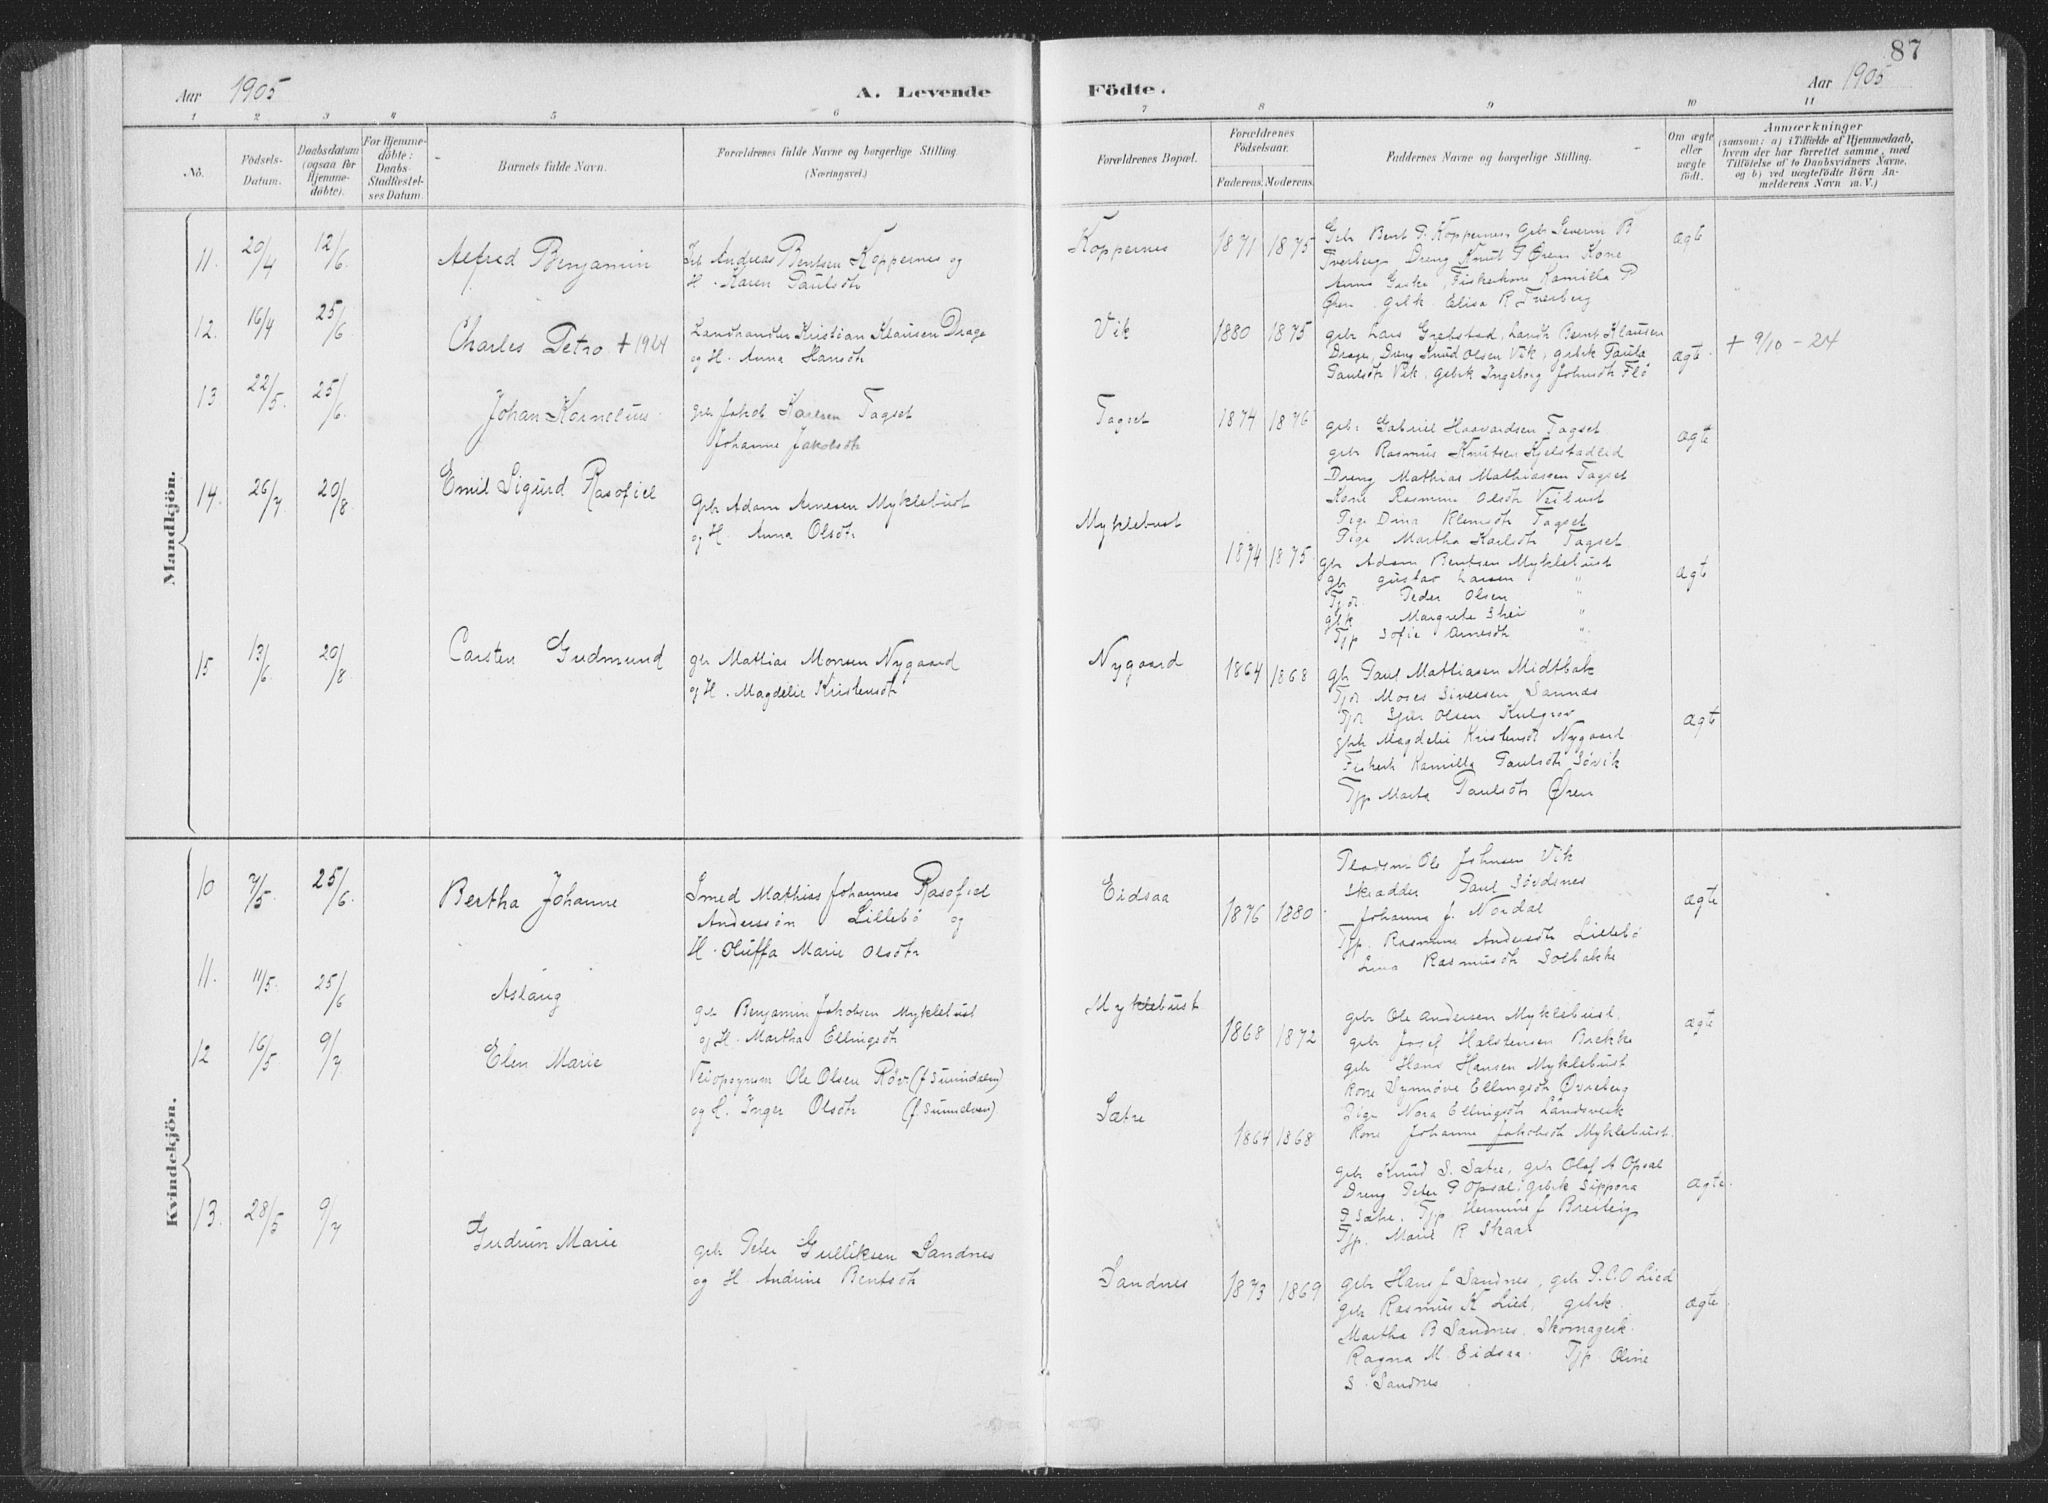 87
Aar 1905
A. Levende
Födte.
Aar 1905
1 2 3 4 5 6 7 8 9 10 11
No.
Födsels-
Datum.
Daabsdatum
(ogsaa for
Hjemme-
döbte).
For Hjemme-
döbte:
Daabs-
Stadfæstel-
ses Datum.
Barnets fulde Navn.
Forældrenes fulde Navne og borgerlige Stilling.
(Næringsvei.)
Forældrenes Bopæl.
Forældrenes
Födselsaar.
Faderens. Moderens.
Faddernes Navne og borgerlige Stilling.
Om ægte
eller
uægte
født.
Anmærkninger
(saasom: a) i Tilfælde af Hjemmedaab,
hvem der har forrettet samme, med
Tilföielse af to Daabsvidners Navne.
og b) ved uægtefödte Börn An-
melderens Navn m. V.)
Mandkjön.
11. 20/4 12/6. Alfred Benjamin
Andreas Bentsen Koppernes og
H. Karen Paulsdtr
Koppernes 1871 1875
Gbr Bent P. Koppernes, gbr Severin B
Tverberg, Dreng Knut P Øren Kone
Anna Giske, Fiskerkone Kamilla P
Øren gbrk. Elisa R Tverberg
ægte
12. 16/4 25/6 Charles Petro + 1924
Landhandler Kristian Klausen Drage
og H. Anna Hansdtr
Vik 1880 1875
gbr Lars Grebstad, Landh Bernt Klausen
Drage, Dreng Knud Olsen Vik, gbrk Paula
Paulsdtr Vik, gbrk Ingeborg Johnsdtr Flö
ægte + 9/10 - 24
13 22/5. 25/6. Johan Kornelius
gbr Jakob Karlsen Tagset
Johanne Jakobsdtr
Tagset 1874 1876
gbr Gabriel Haavardsen Tagset
gbr Rasmus Knutsen Kjelstadlid
Dreng Mathias Mathiassen Tagset
Kone Rasmine Olsdtr Veibust
Pige Dina Klemsdtr Tagset
Pige Martha Karlsdtr Tagset
ægte
14. 26/7 20/8 Emil Sigurd Rasofiel
Gbr Adam Arnesen Myklebust
og H. Anna Olsdtr
Myklebust 1874 1875.
gbr Adam Bentsen Myklebust
gbr Gustav Larsen "
Tjdr. Peder Olsen "
gbk Margrete Shei "
Tjp Sofie Arnesdtr "
ægte
15 13/6 20/8 Carsten Gudmund
gbr Mattias Monsen Nygaard
og H. Magdelie Kristensdtr
Nygaard 1864 1868
gbr Paul Mattiasen Midtbak
Tjdr. Moses Siversen Sannes
Tjdr Olsen
gbrk Magdelie Kristensdtr Nygaard
Fiskerk Kamilla Paulsdtr Søvik
Tjp Marta Paulsdtr Øren
ægte
Kvindekjön.
10 7/5. 25/6. Bertha Johanne
Smed Mathias Johannes Rasofiel
Anderssön Lillebö og
H. Oluffa Marie Olsdtr
Eidsaa 1876 1880
Pladsm Ole Johnsen Vik
Skrædder Paul Søvdsnes
Johanne J. Nordal
Tjp. Rasmine Andersdtr Lillebö
Lina Rasmusdtr Solbakke
ægte
11. 11/5. 25/6 Aslaug
gbr Benjamin Jakobsen Myklebust
og H. Martha Ellingsdtr
Myklebust 1868 1872
gbr Ole Andersen Myklebust.
gbr Josef Halstensen Brekke
gbr Hans Hansen Myklebust
Kone Synnøve Ellingsdtr Øvreberg
Pige Nora Ellingsdtr Landsverk
Kone Johanne Jakobsdtr Myklebust.
ægte
12 16/5 9/7. Elen Marie
Veiopsynsm Ole Olsen Röv. (f Sunndalen)
og H. Inger Olsdtr (f Sunnelven)
Sætre 1864 1868
gbr Knud S. Sætre, gbr Olaf A Opsal
Dreng Peter P Opsal, gbrk Sippora
P Sætre. Tjp. Hermine J Breiteig
Tjp. Marie R Skaar
ægte.
13. 28/5 9/7 Gudrun Marie
gbr Peter Gulliksen Sandnes
og H. Andrine Bentsdtr
Sandnes 1873 1869
gbr Hans J Sandnes, gbr P.C.O Lied
gbr Rasmus K Lied, gbrk.
Martha B Sandnes. Skomagerk.
Ragna M. Eidsaa. Tjp. Oline
S. Sandnes
ægte.